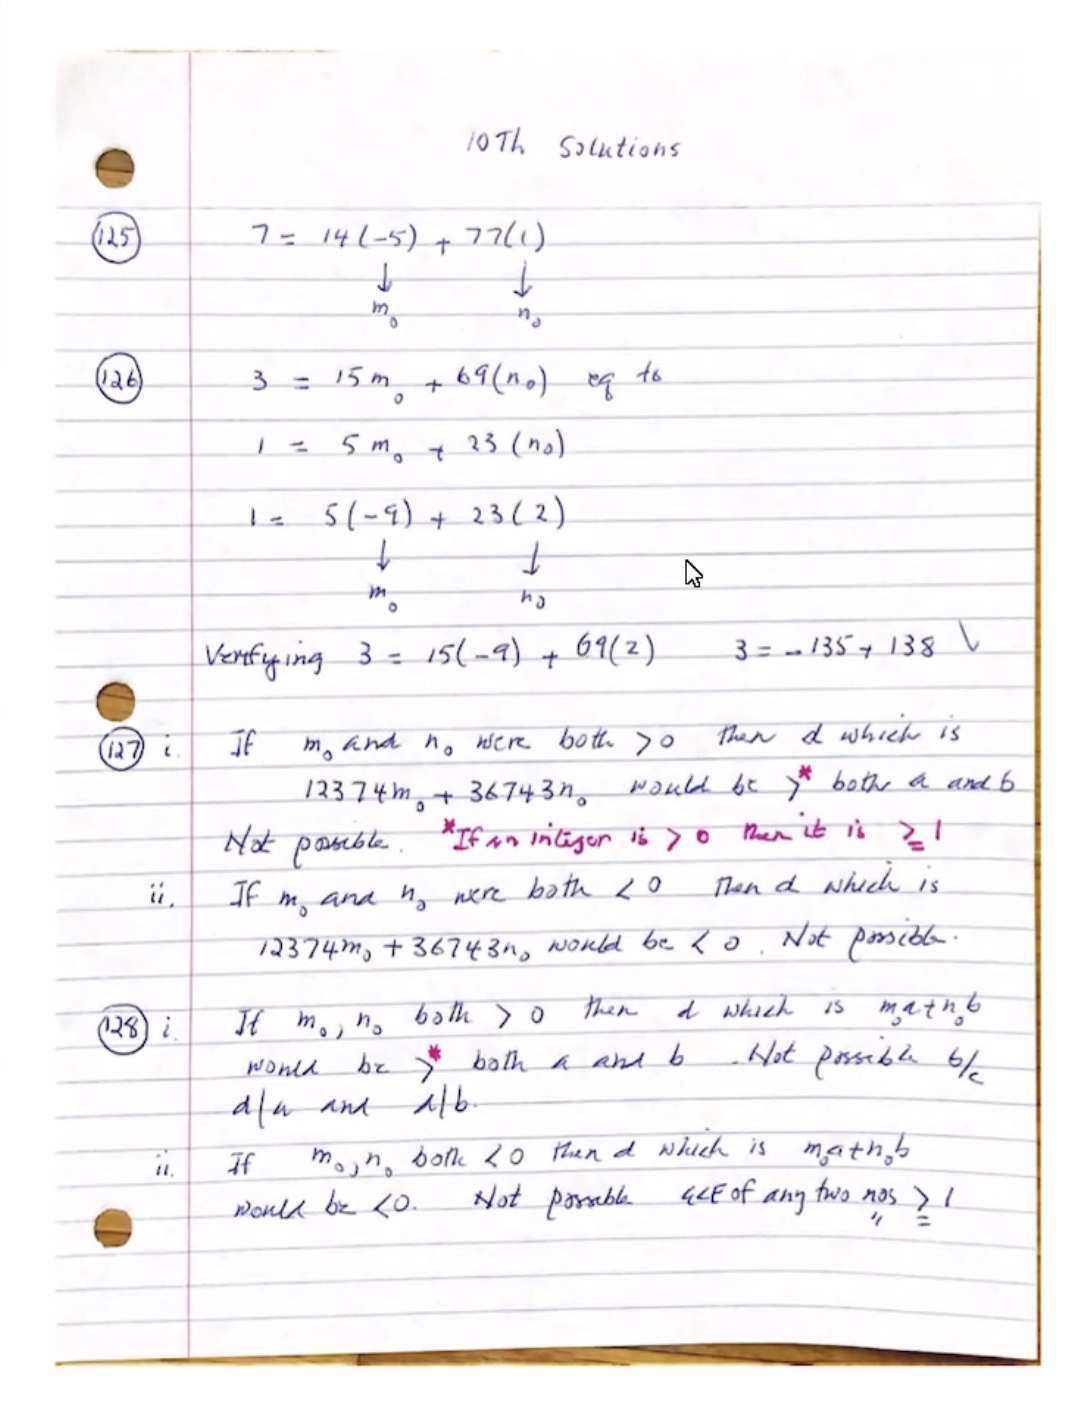 10Th Solutions
125 7 = 14(-5) + 77(1)
↓ ↓
m₀ n₀
126 3 = 15m₀ + 69(n₀) eq to
1 = 5m₀ + 23(n₀)
1 = 5(-9) + 23(2)
↓ ↓
m₀ n₀
Verifying 3 = 15(-9) + 69(2) 3 = -135 + 138
127 i. If m₀ and n₀ were both > 0 then d which is
12374m₀ + 36743n₀ would be >* both a and b
Not possible. *If an integer is > 0 then it is ≥ 1
ii. If m₀ and n₀ were both < 0 Then d which is
12374m₀ + 36743n₀ would be < 0. Not possible.
128 i. If m₀, n₀ both > 0 then d which is m₀a+n₀b
would be >* both a and b. Not possible b/c
d/a and d/b.
ii. If m₀, n₀ both < 0 then d which is m₀a+n₀b
would be < 0. Not possible of any two nos ≥ 1